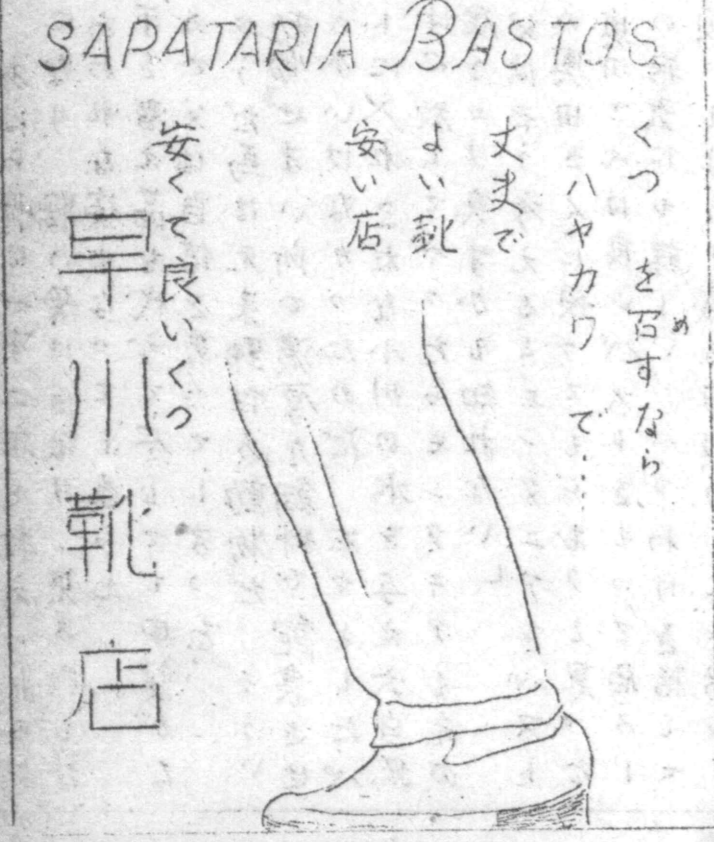 SAPATARIA BASTOS
くつを召すなら
め
ハヤカワで……
丈夫で
よい靴
安い店
安くて良いくつ
早川靴店